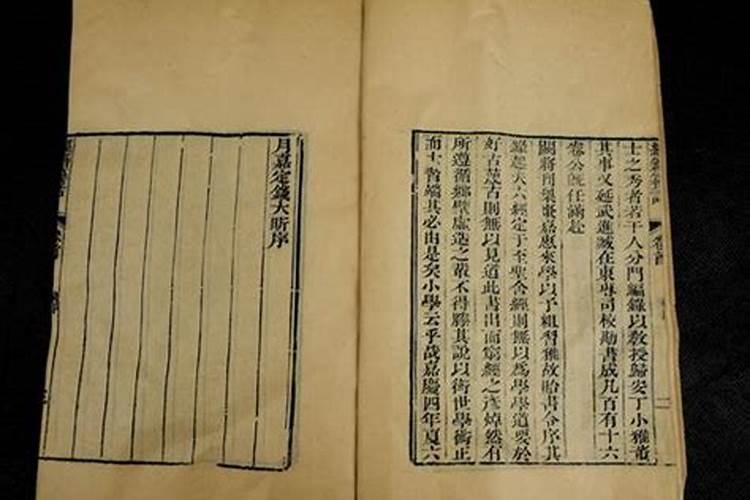 士之秀者若干人分門編錄以教授歸安丁小雅董
其事又延武進臧在東專司校勘書成凡百有十六
卷公既任滿赴
闕將刊梨棗嘉惠來學以予粗習雅故貽書令序其
緣起夫六經定于至聖舍經則無以為學學道要於
好古蔑古則無以見道此書出而窮經之彥焯然有
所遵循鄉壁虛造之輩不得滕其說以衒世學術正
而士習端其必由是矣小學云乎哉嘉慶四年夏六
月嘉定錢大昕序